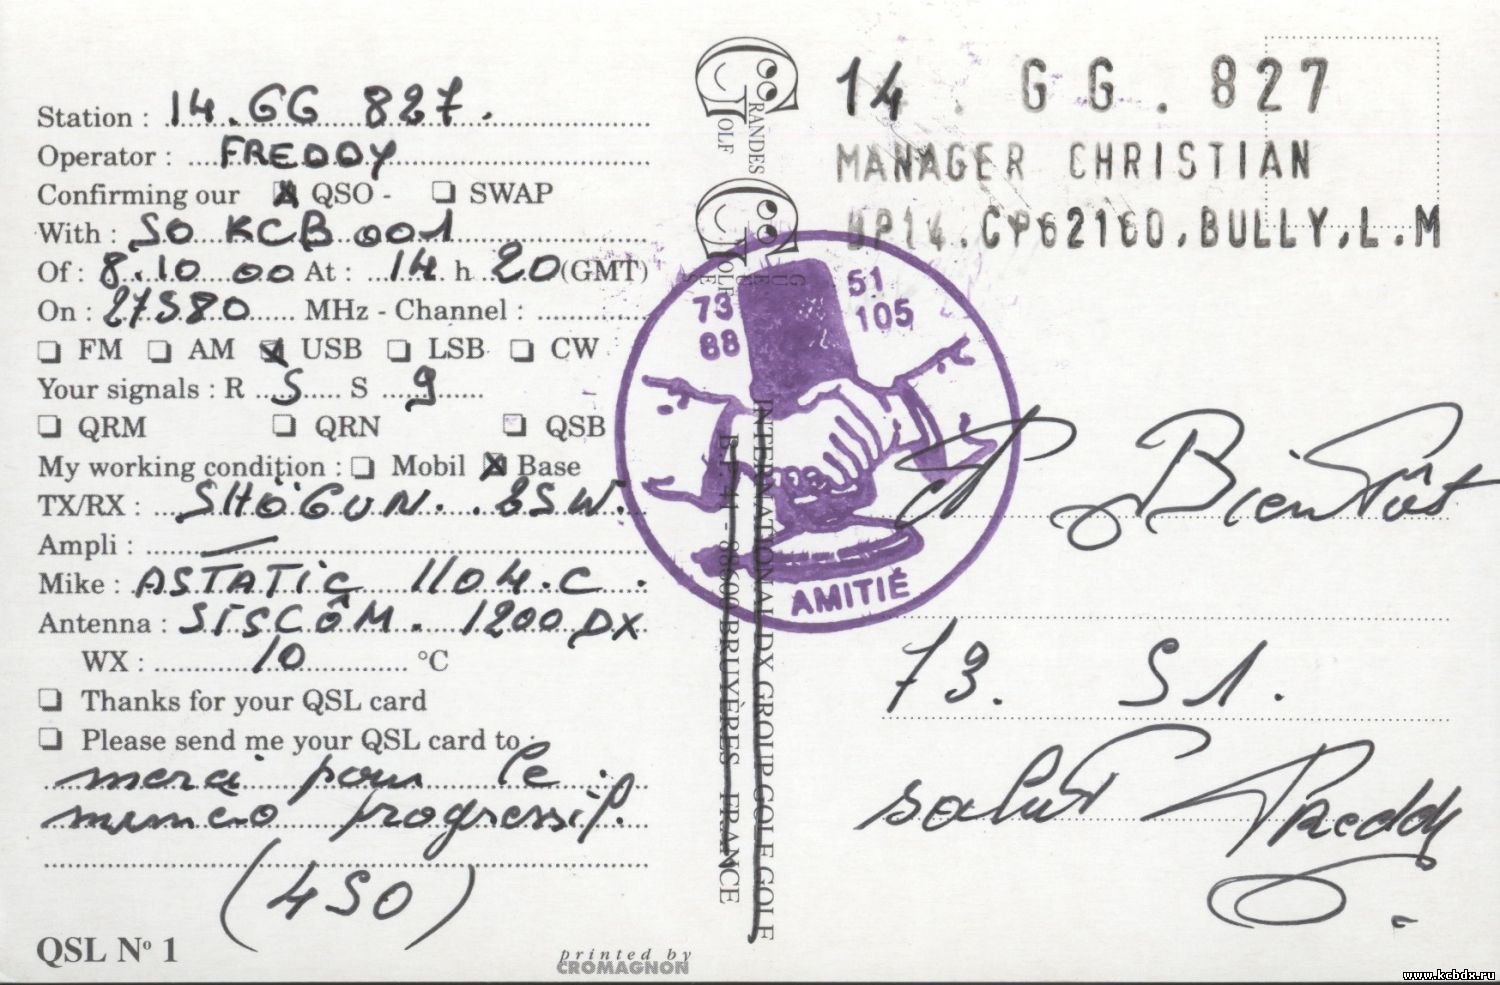 Station : 14.GG 827.
Operator : FREDDY
Confirming our ☒ QSO - ☐ SWAP
With : 50 KCB 001
Of : 8.10.00 At : 14 h 20 (GMT)
On : 27580 MHz - Channel :
☐ FM ☐ AM ☒ USB ☐ LSB ☐ CW
Your signals : R 5 S 9
☐ QRM ☐ QRN ☐ QSB
My working condition : ☐ Mobil ☒ Base
TX/RX : SHÔGUN. 25W.
Ampli : —
Mike : ASTATIC 1104.C.
Antenna : SISCÔM. 1200 DX
WX : 10 °C
☐ Thanks for your QSL card
☐ Please send me your QSL card to :
merci pour le
numéro progressif.
(450)
QSL Nº 1
printed by
CROMAGNON
GRANDES
GOLF
GOLF
INTERNATIONAL DX GROUP GOLF GOLF
B.P. 41 - 88600 BRUYÈRES FRANCE
14 . GG . 827
MANAGER CHRISTIAN
BP14.CP62160,BULLY,L.M
73 51
88 105
AMITIÉ
A Bientôt
73. 51.
salut Freddy
www.kcbdx.ru